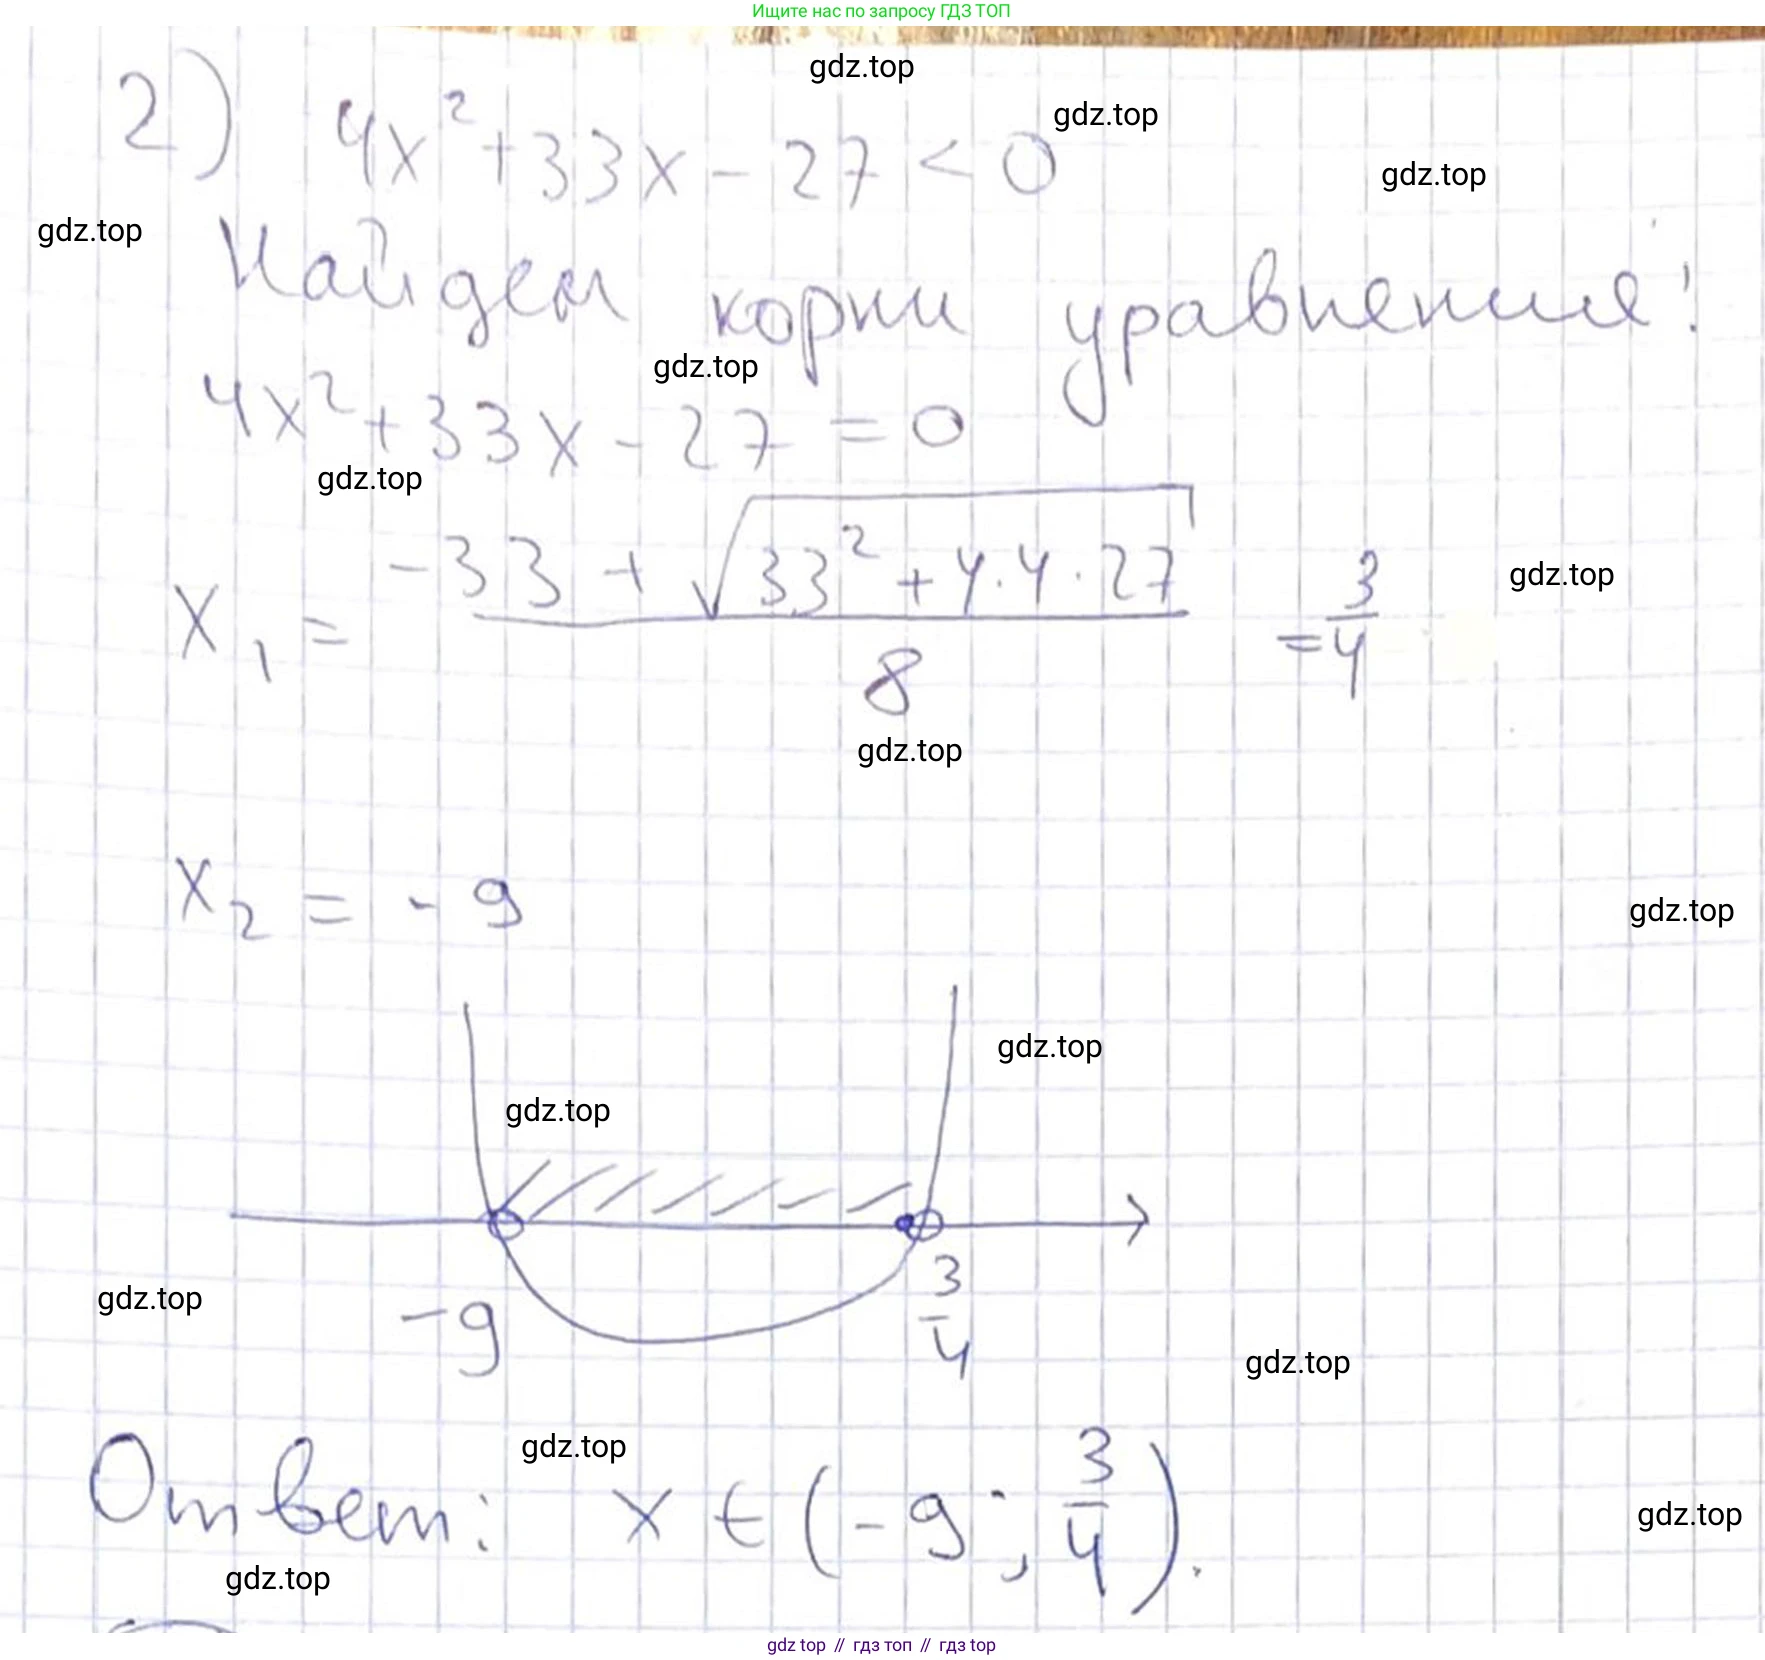 Ищите нас по запросу ГДЗ ТОП
gdz.top
gdz.top
2) 4x² + 33x - 27 < 0
gdz.top
gdz.top
Найдем корни уравнения:
gdz.top
4x² + 33x - 27 = 0
gdz.top
x₁ = (-33 + √(33² + 4·4·27)) / 8 = 3/4
gdz.top
gdz.top
x₂ = -9
gdz.top
gdz.top
gdz.top
-9 3/4
gdz.top
gdz.top
gdz.top
Ответ: x ∈ (-9; 3/4).
gdz.top
gdz.top
gdz top // гдз топ // gdz top